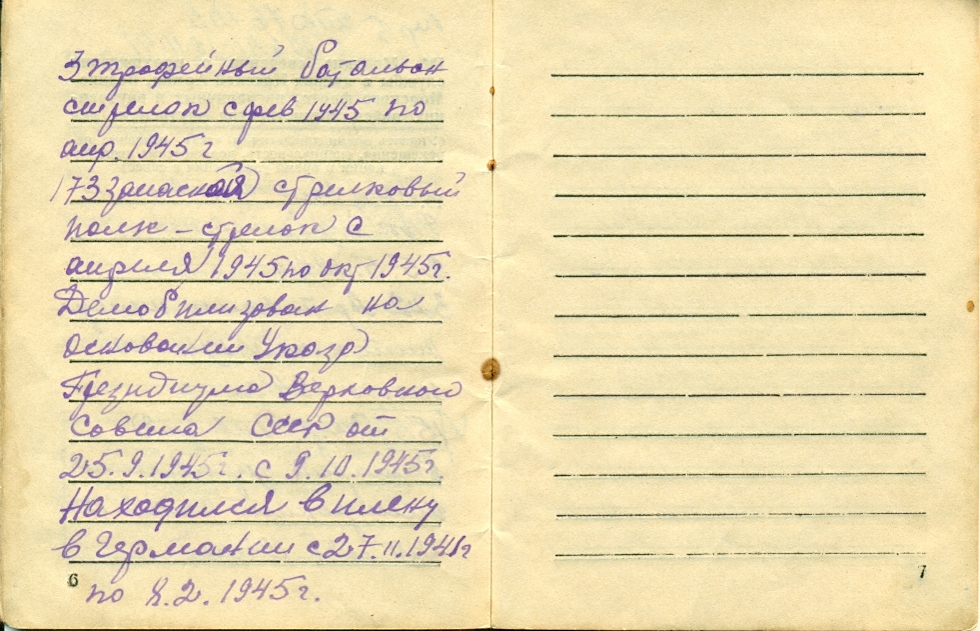 3 трофейный батальон
стрелок с фев 1945 по
апр. 1945 г
173 запасной стрелковый
полк – стрелок с
апреля 1945 по окт 1945г.
Демобилизован на
основании Указа
Президиума Верховного
Совета СССР от
25.9.1945г. с 9.10.1945г.
Находился в плену
в Германии с 27.11.1941г
6
по 8.2.1945г.
7